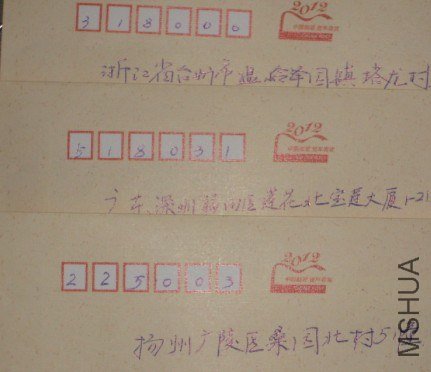 318000
2012
浙江省台州市温岭泽国镇塔龙村
518031
2012
广东深州福田区莲花北宝莲大厦1-21
225003
2012
扬州广陵区桑园北村5
MSHUA